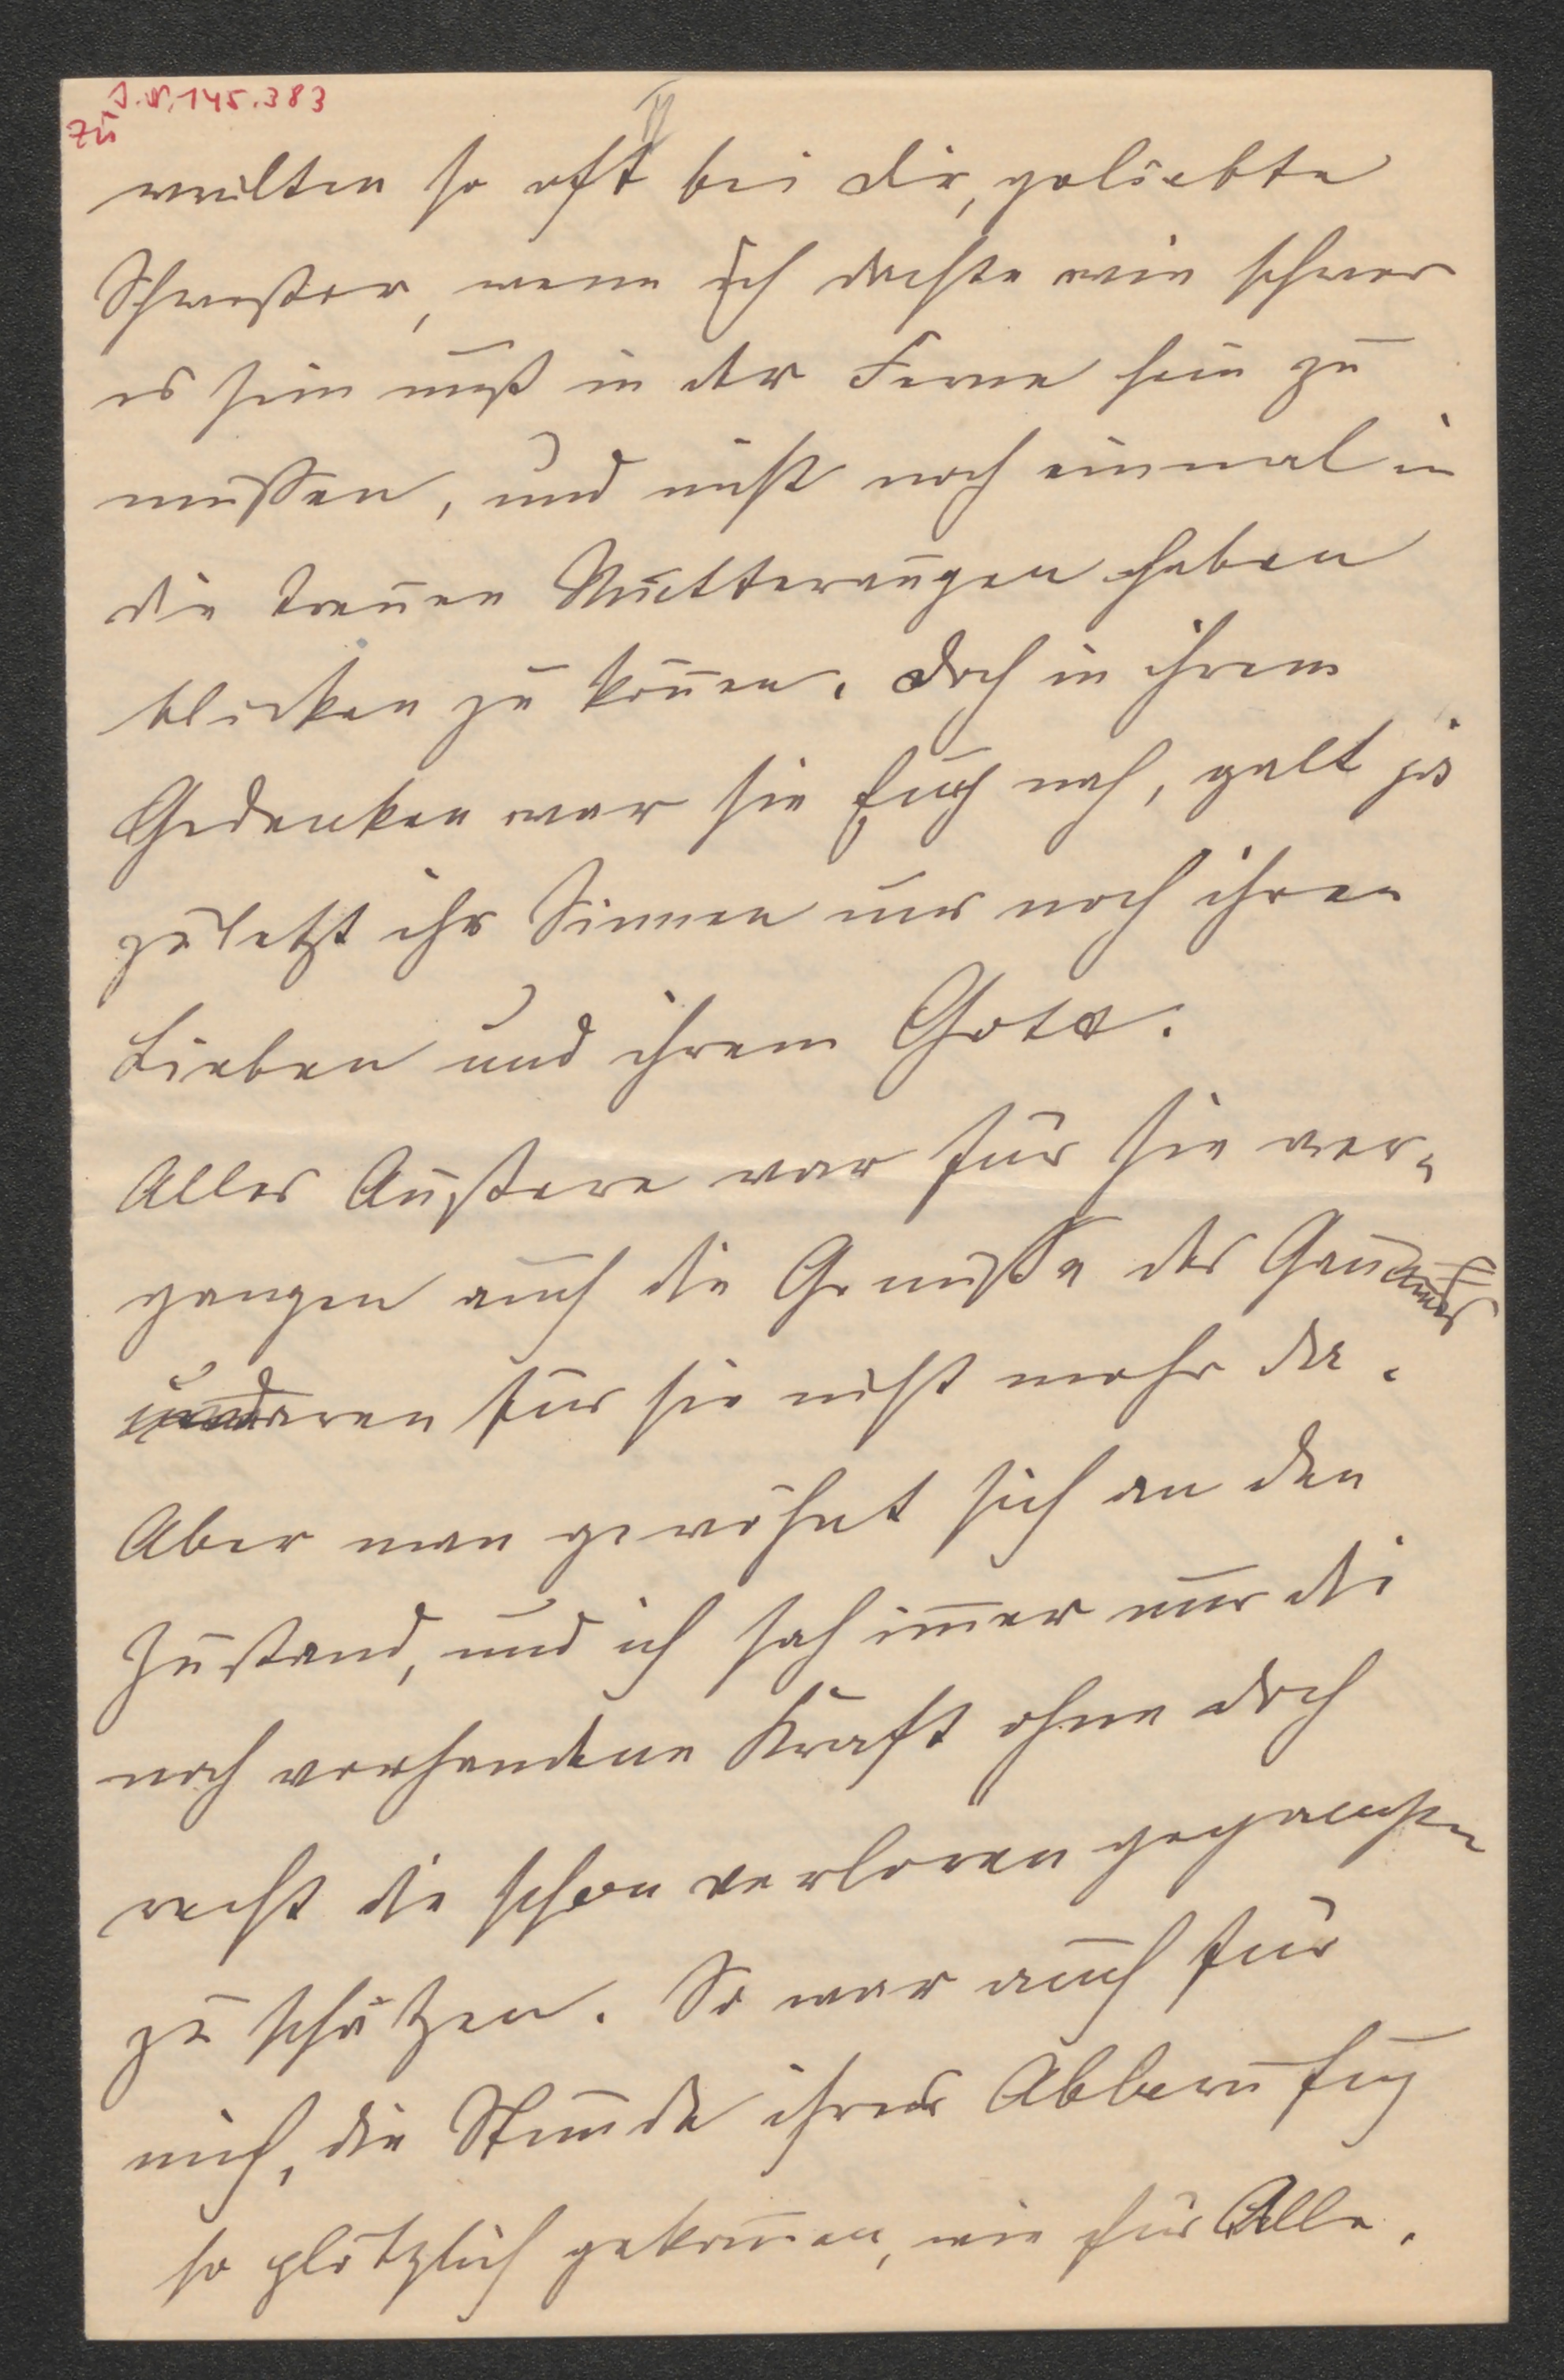 J.N. 145.383
zu
II
weilten so oft bei dir, geliebte
Schwester, wenn ich dachte wie schwer
es sein muß in der Ferne sein zu
müssen, und nicht noch einmal in
die treuen Mutteraugen haben
blicken zu können. Doch in ihrem
Gedenken war sie Euch nah, galt ja
zuletzt ihr Sinnen nur noch ihren
Lieben und ihrem Gott.
Alles Äußere war für sie ver-
gangen auch die Genüsse des
waren für sie nicht mehr da.
Aber man gewöhnt sich an den
Zustand, und ich sah immer nur die
noch vorhandene Kraft ohne doch
recht die schon verloren
zu schätzen. So war auch für
mich, die Stunde ihrer Abberufung
so plötzlich gekommen, wie für Alle.